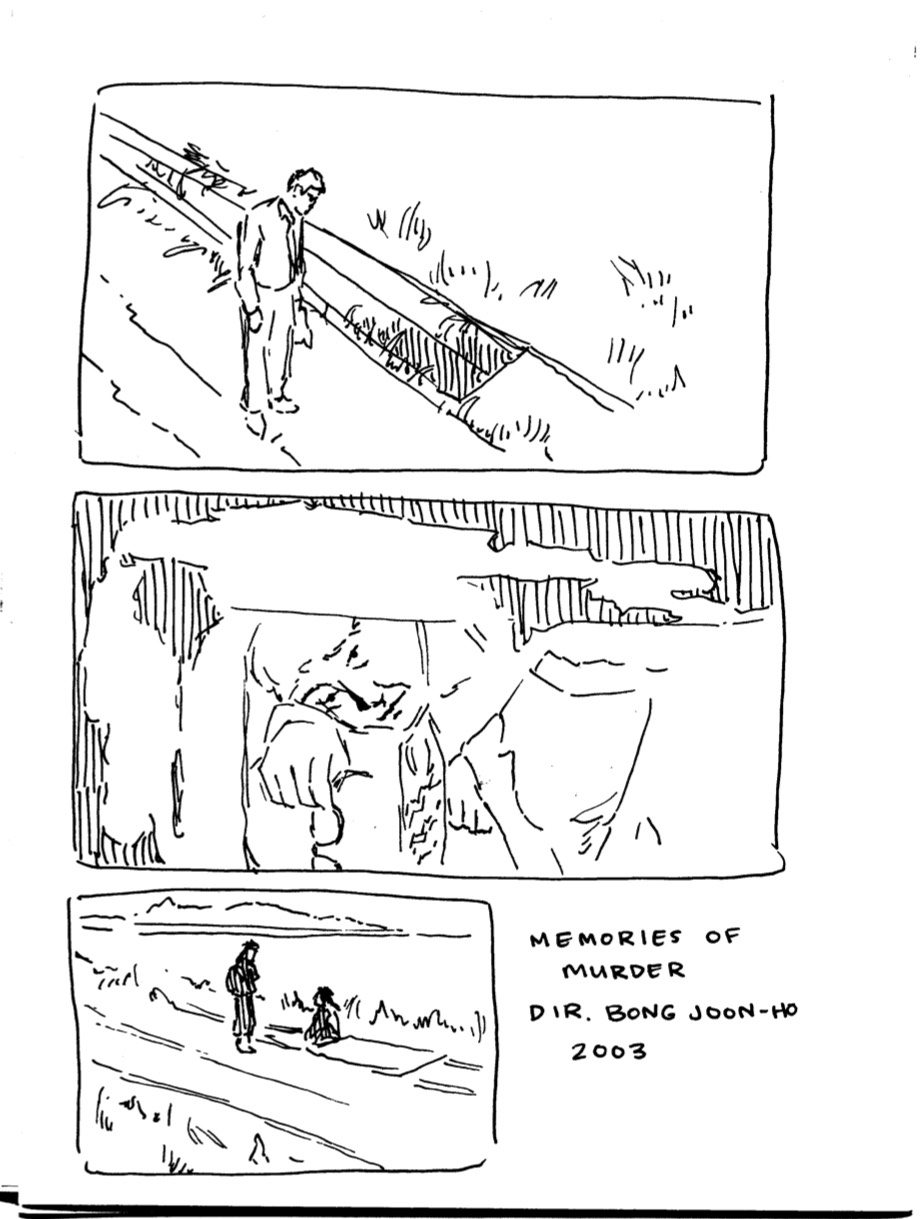 MEMORIES OF
MURDER
DIR. BONG JOON-HO
2003